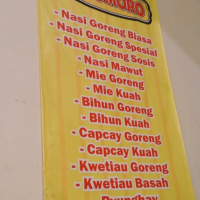 - Nasi Goreng Biasa
- Nasi Goreng Spesial
- Nasi Goreng Sosis
- Nasi Mawut
- Mie Goreng
- Mie Kuah
- Bihun Goreng
- Bihun Kuah
- Capcay Goreng
- Capcay Kuah
- Kwetiau Goreng
- Kwetiau Basah